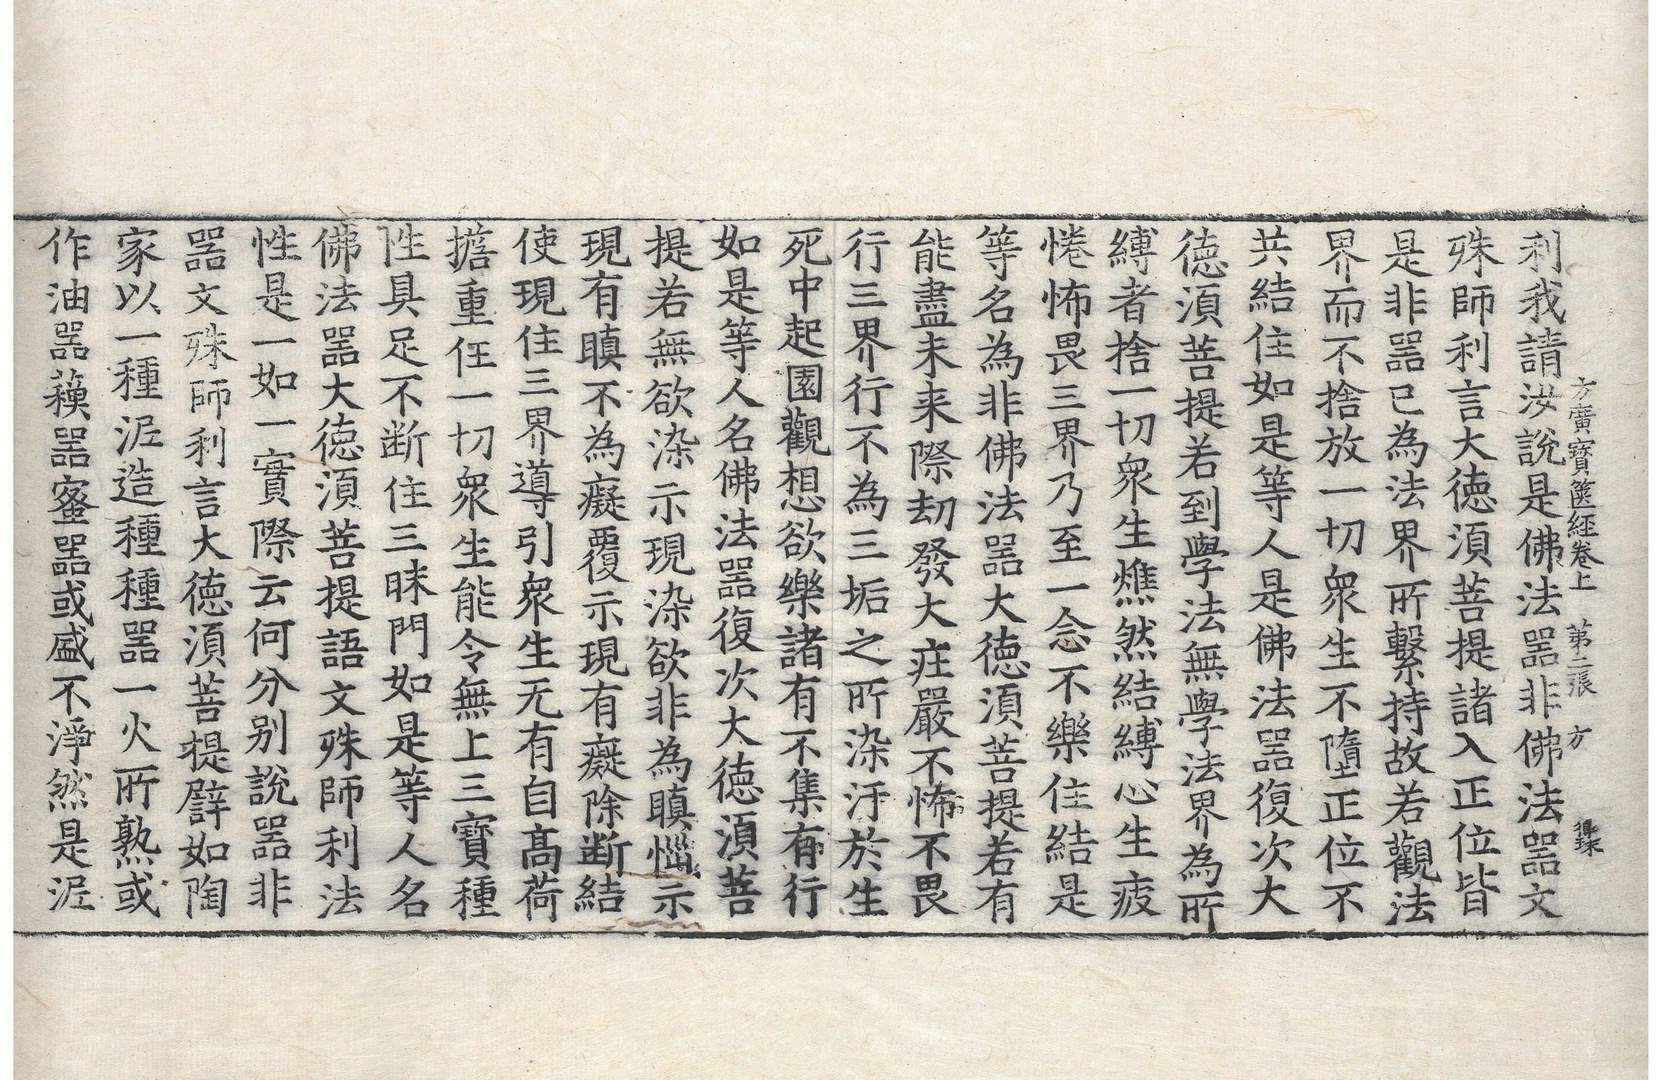 利我請汝說是佛法器非佛法器文
方廣寶篋經卷上 第二張 方
殊師利言大德須菩提諸入正位皆
是非器已為法界所繫持故若觀法
界而不捨放一切眾生不墮正位不
共結住如是等人是佛法器復次大
德須菩提若到學法無學法界為所
縛者捨一切眾生燋然結縛心生疲
惓怖畏三界乃至一念不樂住結是
等名為非佛法器大德須菩提若有
能盡未来際劫發大庄嚴不怖不畏
行三界行不為三垢之所染汙於生
死中起園觀想欲樂諸有不集有行
如是等人名佛法器復次大德須菩
提若無欲染示現染欲非為瞋惱示
現有瞋不為癡覆示現有癡除断結
使現住三界導引眾生无有自高荷
擔重任一切眾生能令無上三寶種
性具足不断住三脒門如是等人名
佛法器大德須菩提語文殊師利法
性是一如一實際云何分別說器非
器文殊師利言大德須菩提譬如陶
家以一種泥造種種器一火所熟或
作油器蘇器蜜器或盛不淨然是泥